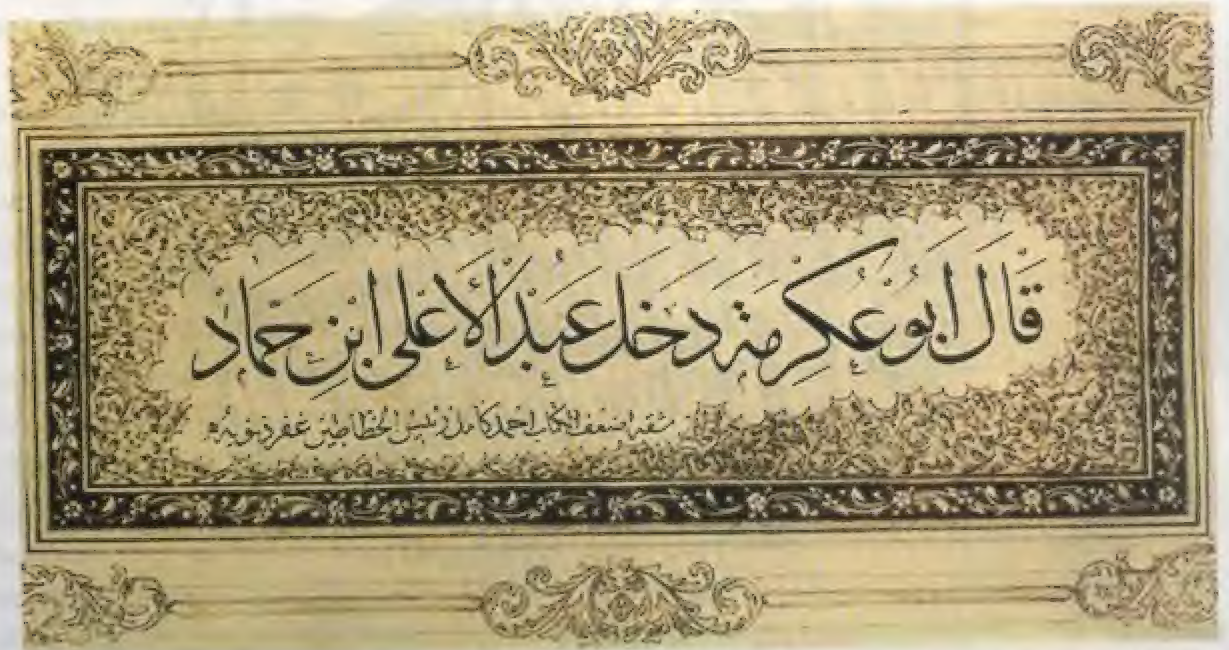 قَالَ اَبُو عِكْرِمَة دَخَلَ عَبْدُ الْاَعْلٰى ابْنِ حَمَّاد
مشقه اضعف الكتاب احمد كامل رئيس الخطاطين غفر ذنوبه